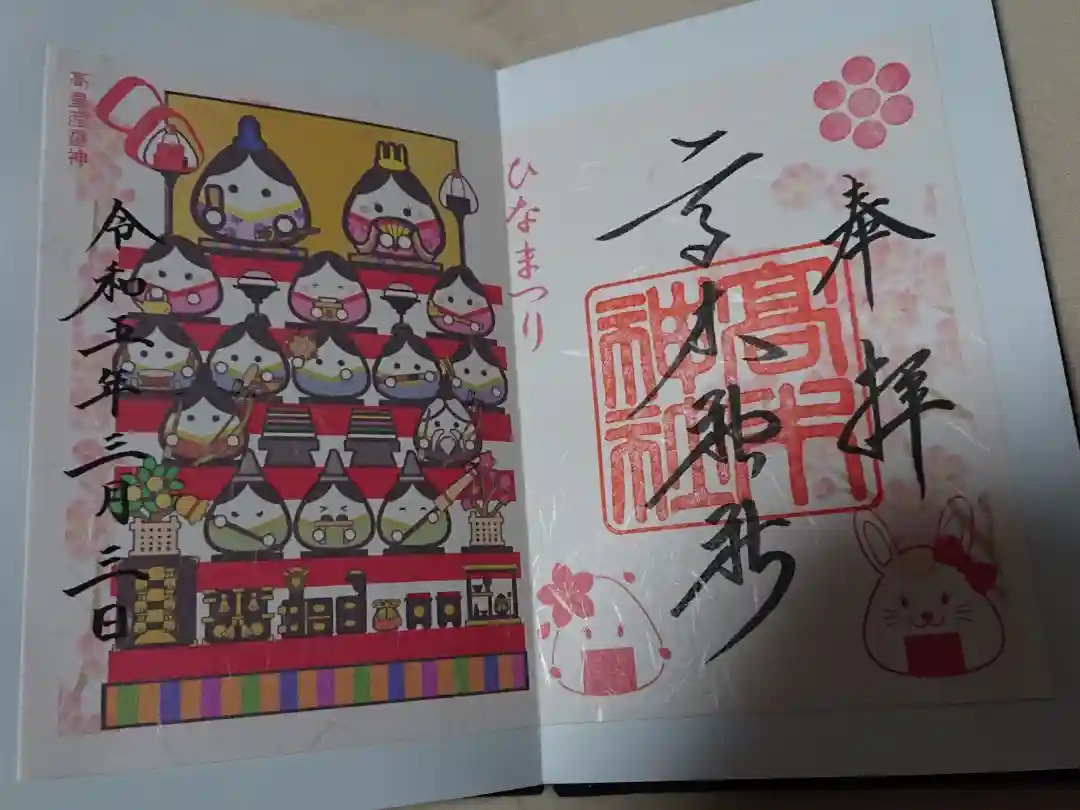 奉拝
高木神社
高木神社
ひなまつり
令和五年三月三日
高皇産霊神